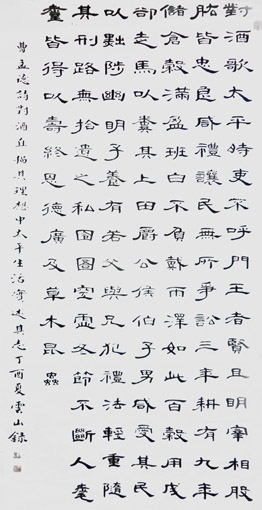 對酒歌太平時吏不呼門王者賢且明宰相股
肱皆忠良咸禮讓民無所爭訟三年耕有九年
儲倉穀滿盈班白不負戴雨澤如此百穀用成
卻走馬以糞其土田爵公侯伯子男咸愛其民
以黜陟幽明子養有若父與兄犯禮法輕重隨
其刑路無拾遺之私囹圄空虛冬節不斷人耄
耋皆得以壽終恩德廣及草木昆蟲
曹孟德詩對酒描其理想中太平生活實述其志丁酉夏雲山錄